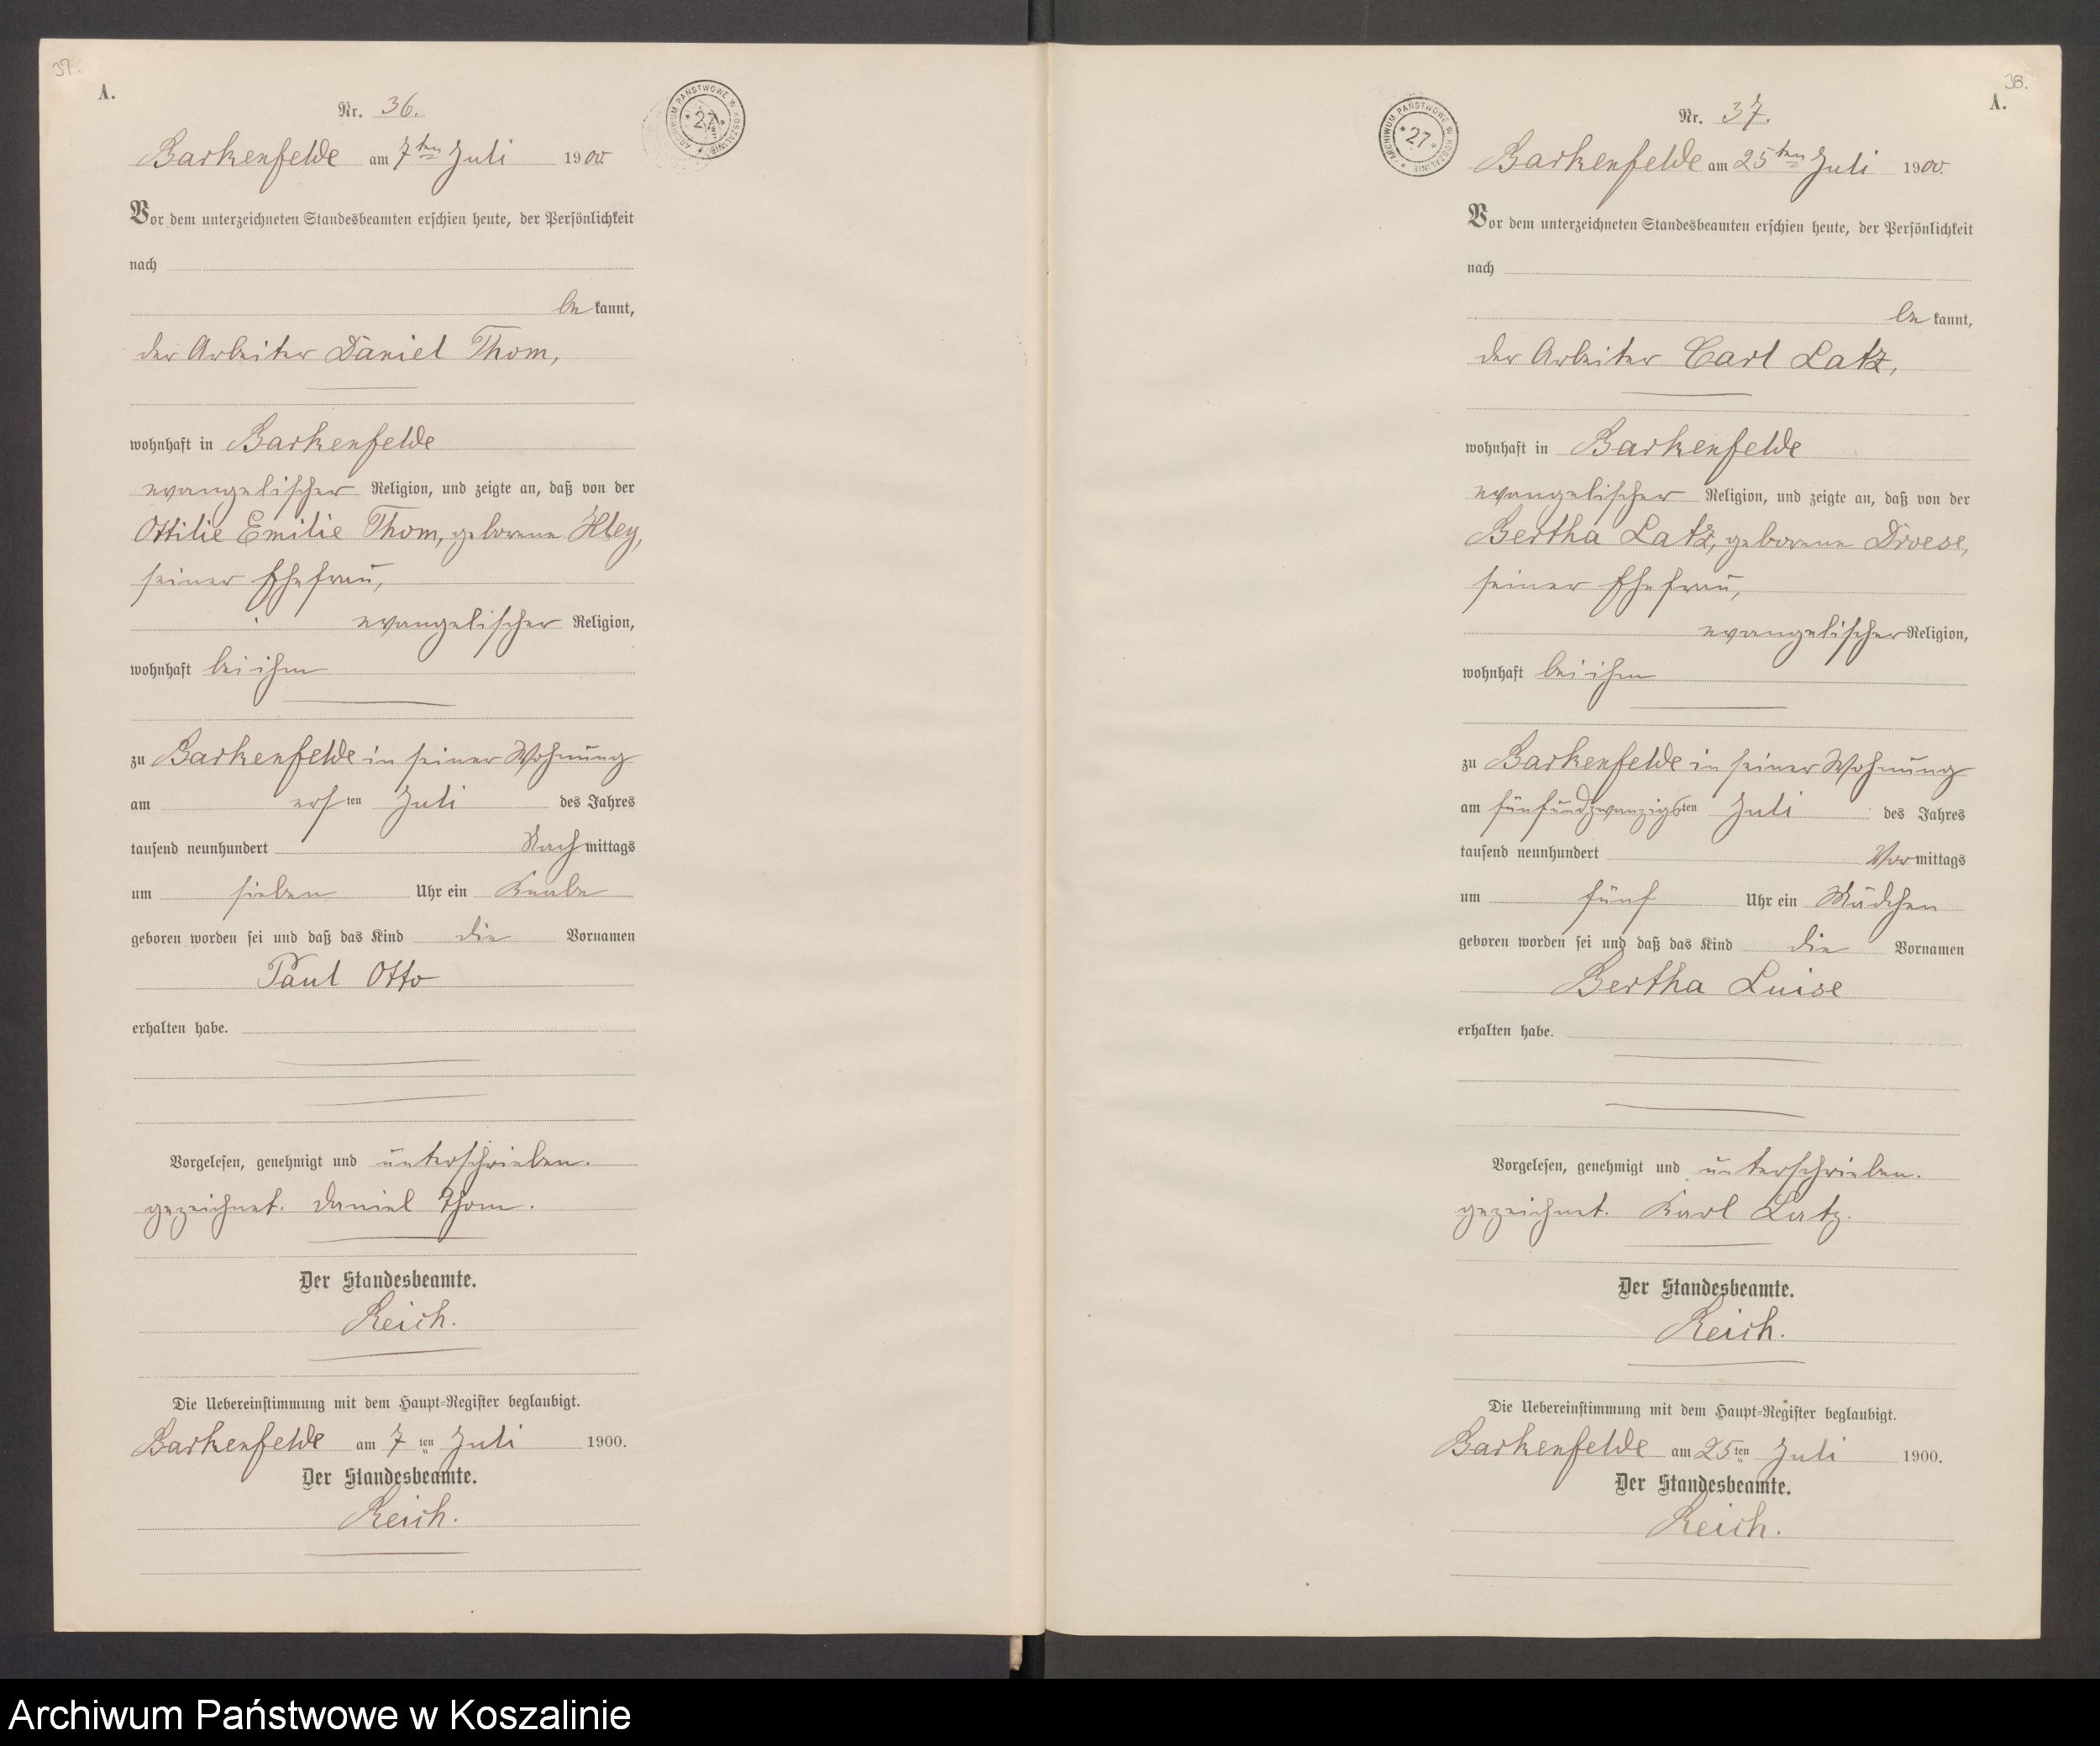 37.
A.
Nr. 36.
ARCHIWUM PAŃSTWOWE W KOSZALINIE
* 27 *
Barkenfelde am 7ten Juli 1900.
Vor dem unterzeichneten Standesbeamten erschien heute, der Persönlichkeit
nach
be kannt,
der Arbeiter Daniel Thom,
wohnhaft in Barkenfelde
evangelischer Religion, und zeigte an, daß von der
Ottilie Emilie Thom, geborene
seiner Ehefrau,
evangelischer Religion,
wohnhaft bei ihm
zu Barkenfelde in seiner Wohnung
am ersten Juli des Jahres
tausend neunhundert Nachmittags
um sieben Uhr ein Knabe
geboren worden sei und daß das Kind die Vornamen
Paul Otto
erhalten habe.
Vorgelesen, genehmigt und unterschrieben.
gezeichnet. Daniel Thom.
Der Standesbeamte.
Reich.
Die Uebereinstimmung mit dem Haupt-Register beglaubigt.
Barkenfelde am 7ten Juli 1900.
Der Standesbeamte.
Reich.
38.
A.
Nr. 37.
ARCHIWUM PAŃSTWOWE W KOSZALINIE
* 27 *
Barkenfelde am 25ten Juli 1900.
Vor dem unterzeichneten Standesbeamten erschien heute, der Persönlichkeit
nach
be kannt,
der Arbeiter Carl Latz,
wohnhaft in Barkenfelde
evangelischer Religion, und zeigte an, daß von der
Bertha Latz, geborene Droese,
seiner Ehefrau,
evangelischer Religion,
wohnhaft bei ihm
zu Barkenfelde in seiner Wohnung
am fünfundzwanzigsten Juli des Jahres
tausend neunhundert Vormittags
um fünf Uhr ein Mädchen
geboren worden sei und daß das Kind die Vornamen
Bertha Luise
erhalten habe.
Vorgelesen, genehmigt und unterschrieben.
gezeichnet. Karl Latz.
Der Standesbeamte.
Reich.
Die Uebereinstimmung mit dem Haupt-Register beglaubigt.
Barkenfelde am 25ten Juli 1900.
Der Standesbeamte.
Reich.
Archiwum Państwowe w Koszalinie